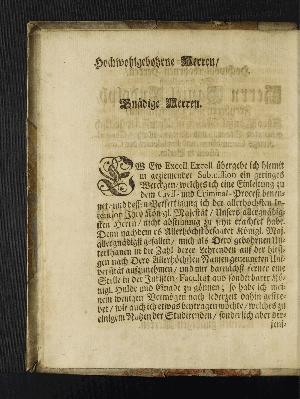 Hochwohlgebohrne Herren/
Gnädige Herren.
EW Excell Excell übergebe ich hiemit
in geziemender Submission ein geringes
Werckgen/ welches ich eine Einleitung zu
dem Civil- und Criminal-Process benen-
net/ und dessen Verfertigung ich bey allerhöchsten In-
tention Ihro Königl. Majestät/ Unsers allergnädig-
sten Herrn/ nicht abstimmig zu seyn erachtet habe.
Denn nachdem es Allerhöchstbesagter Königl. Maj.
allergnädigst gefallen/ mich als Dero gebohrnen Un-
terthanen in die Zahl derer Lehrenden auf der hiesi-
gen nach Dero Allerhöchsten Namen genenneten Uni-
versität aufzunehmen/ und mir darnächst ferner eine
Stelle in der Juristen-Facultät aus sonderbarer Kö-
nigl. Hulde und Gnade zu gönnen; so habe ich mei-
nem wenigen Vermögen nach jederzeit dahin gestre-
bet/ wie auch ich etwas beytragen möchte/ welches zu
einigem Nutzen der Studirenden/ sonderlich aber der-
jeni-